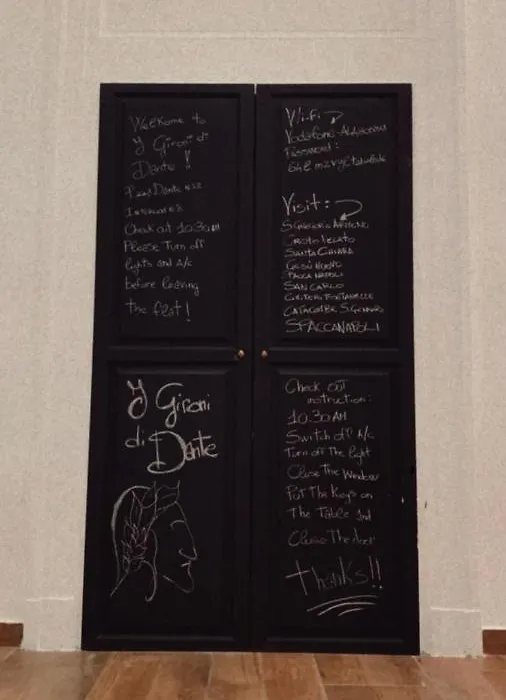 Welcome to
I Gironi di
Dante !
Dante
Check out 10:30 AM
Please Turn off
lights and A/c
before leaving
the flat!
I Gironi
di Dante
Wi-fi
Vodafone-
Password:
Visit:
S.Gregorio Armeno
Cristo Velato
Santa Chiara
Gesù Nuovo
NAPOLI
SAN CARLO
CIMITERO FONTANELLE
CATACOMBE S.GENNARO
SPACCANAPOLI
Check out
instruction:
10.30 AM
Switch off A/c
Turn off The light
Close The Window
Put The Keys on
The Table And
Close The door
thanks!!